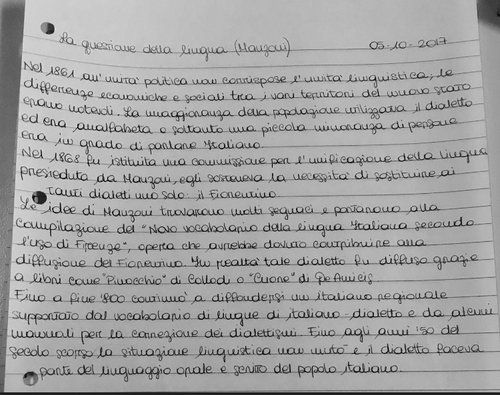 La questione della lingua (Manzoni) 05-10-2017
Nel 1861 all'unità politica non corrispose l'unità linguistica; le
differenze economiche e sociali tra i vari territori del nuovo stato
erano notevoli. La maggioranza della popolazione utilizzava il dialetto
ed era analfabeta e soltanto una piccola minoranza di persone
era in grado di parlare Italiano.
Nel 1868 fu istituita una commissione per l'unificazione della lingua
presieduta da Manzoni, egli sosteneva la necessità di sostituire ai
tanti dialetti uno solo: il Fiorentino
Le idee di Manzoni trovarono molti seguaci e portarono alla
compilazione del "Novo vocabolario della lingua Italiana secondo
l'uso di Firenze", opera che avrebbe dovuto contribuire alla
diffusione del Fiorentino. In realtà tale dialetto fu diffuso grazie
a libri come "Pinocchio" di Collodi o "Cuore" di De Amicis
Fino a fine '800 continuò a diffondersi un italiano regionale
supportato dal vocabolario di lingue di italiano-dialetto e da alcuni
manuali per la correzione dei dialettismi. Fino agli anni '50 del
secolo scorso la situazione linguistica non mutò e il dialetto faceva
parte del linguaggio orale e scritto del popolo italiano.